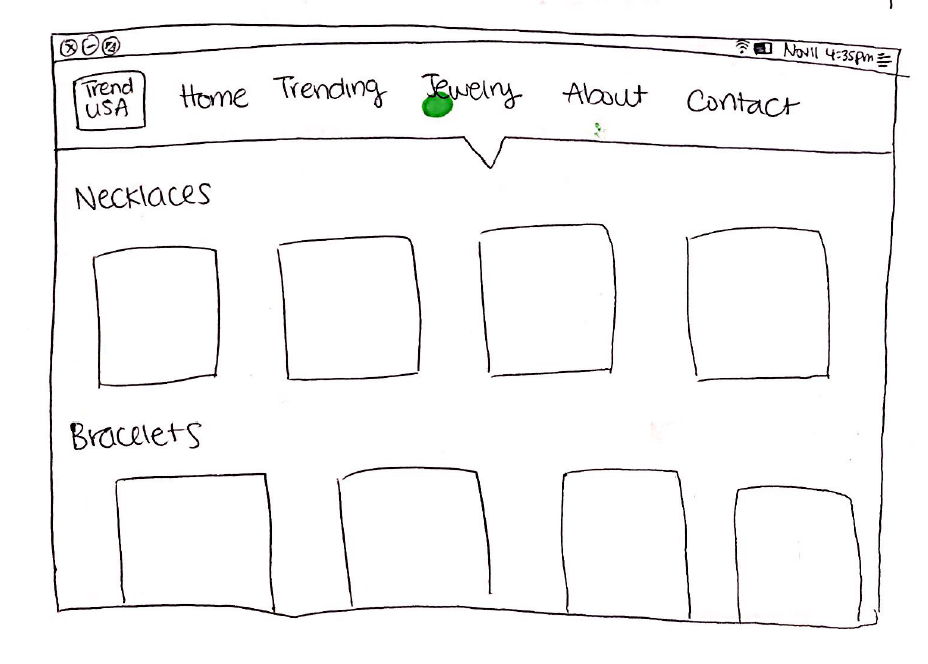 Nov 11 4:35pm
Trend
USA
Home Trending Jewelry About Contact
Necklaces
Bracelets